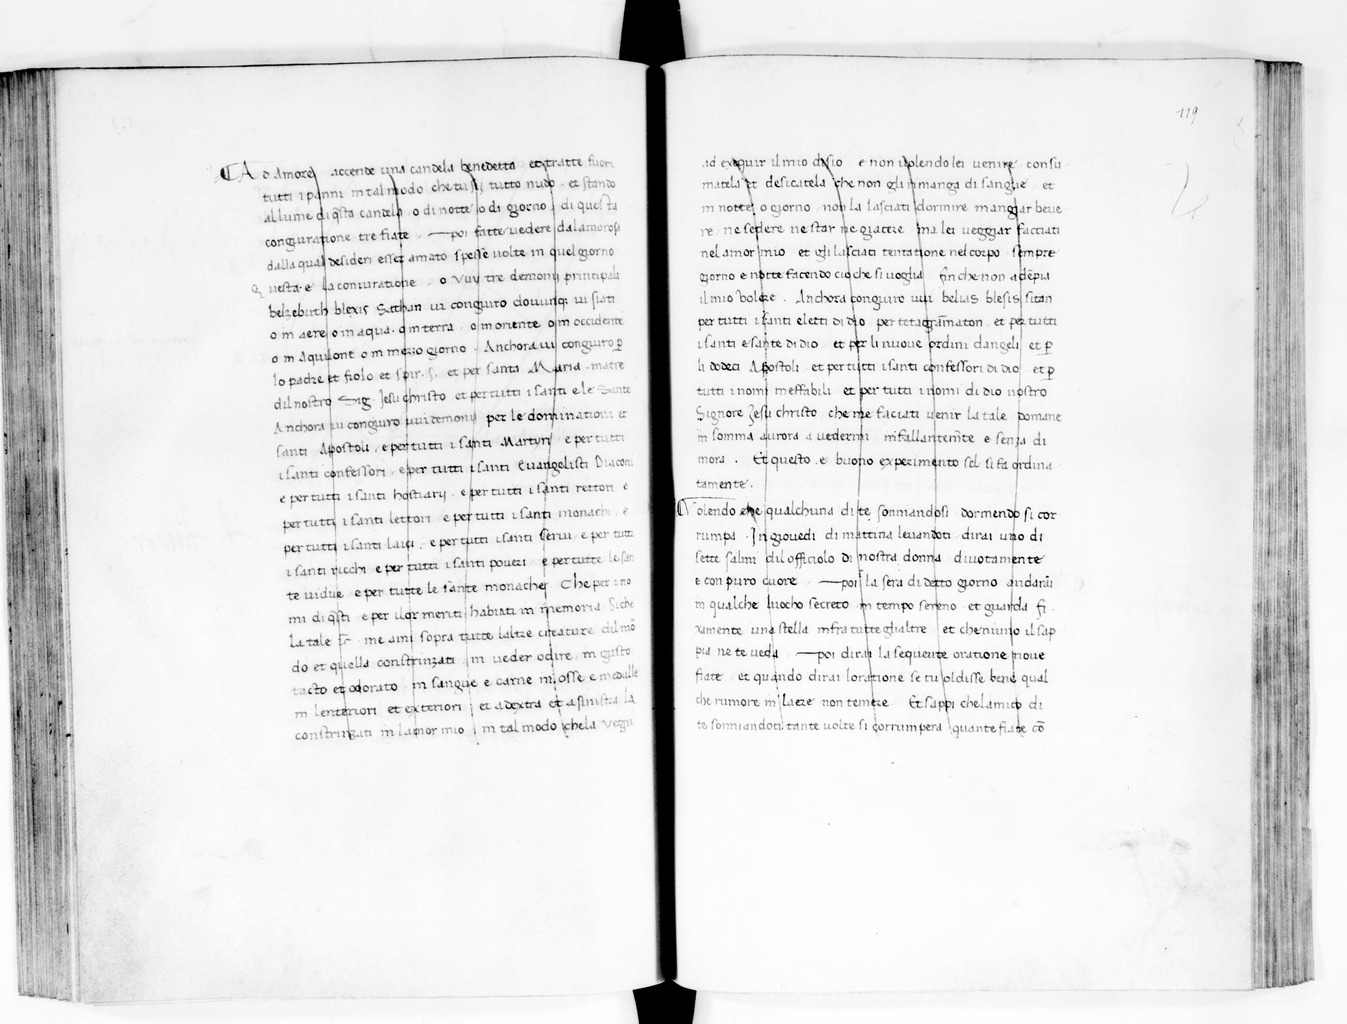 Ad Amore accende una candela benedetta et tratte fuori
tutti i panni in tal modo che tu sij tutto nudo et stando
al lume di q̄sta candela o di notte o di giorno di questa
congiuratione tre fiate poi fatte vedere dalamorosa
dalla qual desideri esser amato spesse volte in quel giorno
Questa e la coniuratione o Vuy tre demonij principali
belzebuth blexis Sathan vi conguro dovunq; vi siati
o in aere o in aqua o in terra o in oriente o in occidente
o in Aquilone o in mezio giorno Anchora vi conguro p̄
lo padre et fiolo et spir. S. et per santa Maria matre
dil nostro Sig. Jesu christo et per tutti i santi e le Sante
Anchora vi conguro vui demonij per le dominationi et
santi Apostoli e per tutti i santi Martyri e per tutti
i santi confessori e per tutti i santi Evangelisti Diaconi
e per tutti i santi hostiarij e per tutti i santi rettori e
per tutti i santi lettori e per tutti i santi monachi e
per tutti i santi laici e per tutti i santi servi e per tutti
i santi ricchi e per tutti i santi poveri e per tutte le san
te vidue e per tutte le sante monache Che per i no
mi di q̄sti e per i lor meriti habiati in memoria Siche
la tale me ami sopra tutte laltre creature dil mō
do et quella constrinzati in veder odire in gusto
tacto et odorato in sangue e carne in osse e medulle
in lenteriori et exteriori et a dextra et a sinistra La
constrinzati in lamor mio in tal modo che la vegni
119
ad exequir il mio disio e non volendo lei venire consu
matela et desicatela che non gli rimanga di sangue et
in notte o giorno non la lasciati dormire mangiar beve
re ne sedere ne star ne giacere ma lei veggiar facciati
nel amor mio et gli lasciati tentatione nel corpo sempre
giorno e notte facendo cio che si voglia fin che non adēpia
il mio volere. Anchora conguro vui belias blesis sitan
per tutti i santi eletti di dio per tetagrām̄aton et per tutti
i santi e sante di dio et per li nuove ordini dangeli et p̄
li dodeci Apostoli et per tutti i santi confessori di dio et p̄
tutti i nomi ineffabili et per tutti i nomi di dio nostro
Signore Jesu christo che me faciati venir la tale domane
in somma aurora a vedermi infallantemte e senza di
mora. Et questo e buono experimento sel si fa ordina
tamente.
Volendo che qualchuna di te sonniandosi dormendo si cor
rumpa In giovedi di mattina levandoti dirai uno di
sette salmi dil officiolo di nostra donna divotamente
e con puro cuore poi la sera di detto giorno andarai
in qualche luocho secreto in tempo sereno et guarda fi.
xamente una stella infra tutte gli altre et che niuno il sap
pia ne te veda poi dirai la sequente oratione nove
fiate et quando dirai loratione se tu oldisse bene qual
che rumore in laere non temere Et sappi che lamico di
te sonniandoti tante volte si corrumpera quante fiate cō